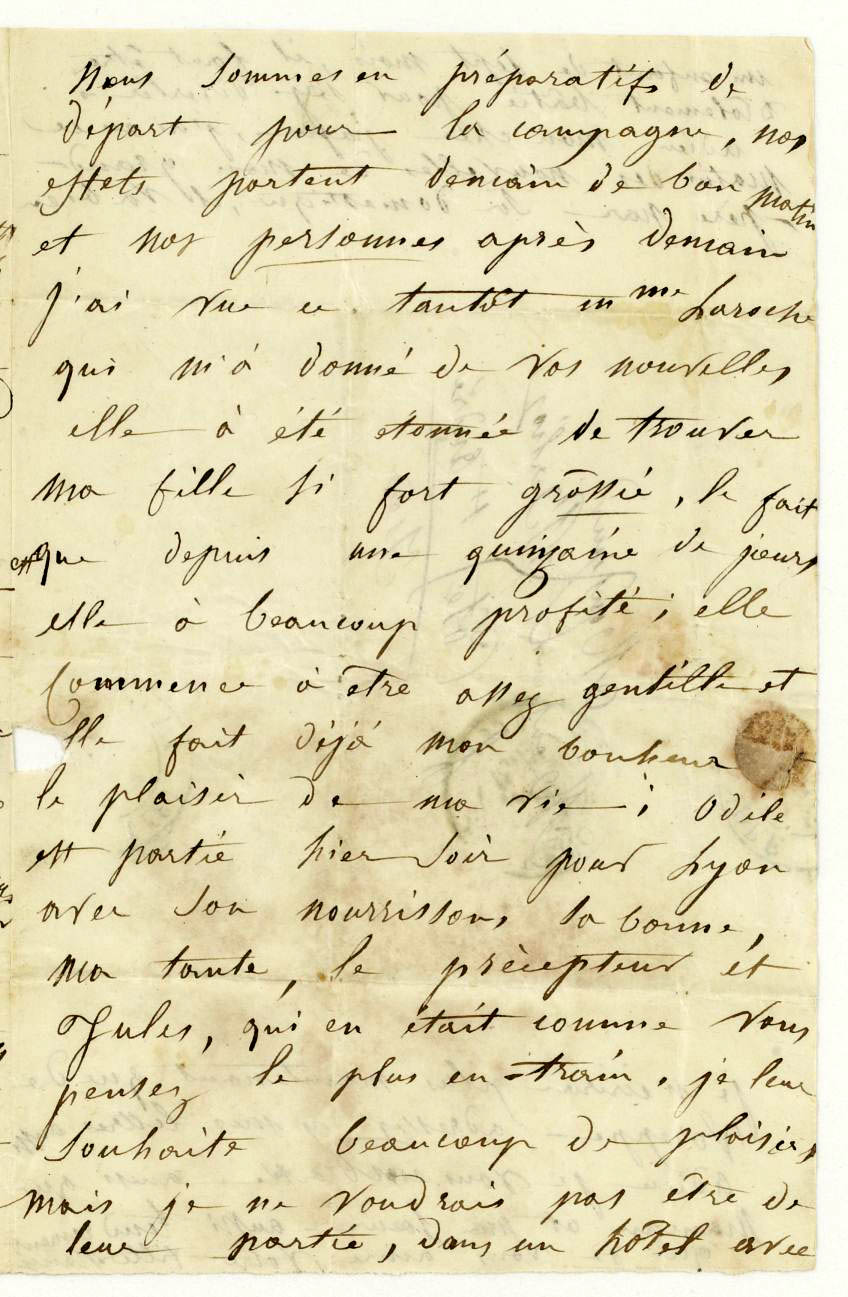 Nous sommes en préparatifs de
départ pour la campagne, nos
effets partent demain de bon matin
et nos personnes après demain
j'ai vue ce tantôt mme Laroche
qui m'à donné de vos nouvelles
elle à été etonnée de trouver
ma fille si fort grossie, le fait
est que depuis une quinzaine de jours
elle à beaucoup profité; elle
commence à être assez gentille et
elle fait déjà mon bonheur et
le plaisir de ma vie; Odile
est partie hier soir pour Lyon
avec son nourrisson, sa bonne,
ma tante, le précepteur et
Jules, qui en était comme vous
pensez le plus en-train. je leur
souhaite beaucoup de plaisirs,
mais je ne voudrais pas être de
leur partie, dans un hôtel avec